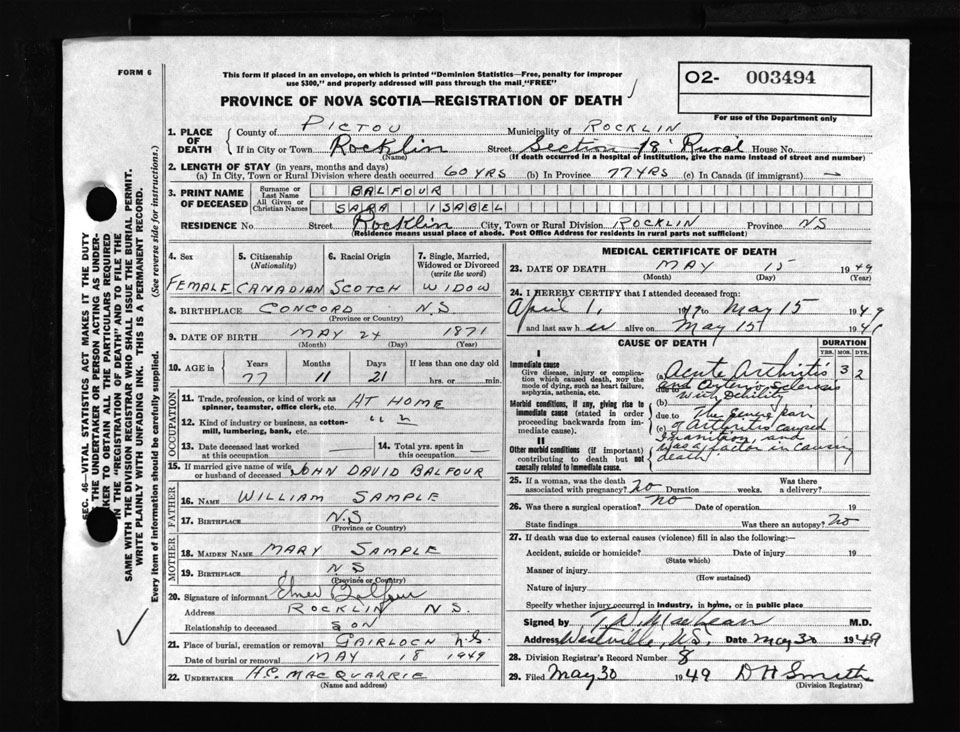 FORM 6
This form if placed in an envelope, on which is printed "Dominion Statistics—Free, penalty for improper
use $300," and properly addressed will pass through the mail "FREE"
O2- 003494
For use of the Department only
PROVINCE OF NOVA SCOTIA—REGISTRATION OF DEATH
1. PLACE OF DEATH County of PICTOU Municipality of ROCKLIN
If in City or Town Rocklin Street Section 18 Rural House No.
(Name) (If death occurred in a hospital or institution, give the name instead of street and number)
2. LENGTH OF STAY (in years, months and days)
(a) In City, Town or Rural Division where death occurred 60 YRS (b) In Province 77 YRS (c) In Canada (if immigrant) —
3. PRINT NAME OF DECEASED Surname or Last Name BALFOUR
All Given or Christian Names SARA ISABEL
RESIDENCE No. Street Rocklin City, Town or Rural Division ROCKLIN Province NS
(Residence means usual place of abode. Post Office Address for residents in rural parts not sufficient)
4. Sex 5. Citizenship (Nationality) 6. Racial Origin 7. Single, Married, Widowed or Divorced (write the word)
FEMALE CANADIAN SCOTCH WIDOW
8. BIRTHPLACE CONCORD N.S.
(Province or Country)
9. DATE OF BIRTH MAY 24 1871
(Month) (Day) (Year)
10. AGE in Years Months Days If less than one day old
77 11 21 hrs. or min.
OCCUPATION
11. Trade, profession, or kind of work as spinner, teamster, office clerk, etc. AT HOME
12. Kind of industry or business, as cotton-mill, lumbering, bank, etc. " "
13. Date deceased last worked at this occupation — 14. Total yrs. spent in this occupation —
15. If married give name of wife or husband of deceased JOHN DAVID BALFOUR
FATHER
16. NAME WILLIAM SAMPLE
17. BIRTHPLACE N.S
(Province or Country)
MOTHER
18. MAIDEN NAME MARY SAMPLE
19. BIRTHPLACE NS
(Province or Country)
20. Signature of informant Elmer Balfour
Address ROCKLIN NS.
Relationship to deceased SON
21. Place of burial, cremation or removal GAIRLOCH N.S.
Date of burial or removal MAY 18 1949
22. UNDERTAKER H.E. MACQUARRIE
(Name and address)
MEDICAL CERTIFICATE OF DEATH
23. DATE OF DEATH MAY 15 1949
(Month) (Day)
24. I HEREBY CERTIFY that I attended deceased from:
April 1, 1949 to May 15 1949
and last saw her alive on May 15 194
CAUSE OF DEATH DURATION
YRS. MOS. DYS.
I
Immediate cause
Give disease, injury or complication which caused death, NOT the mode of dying, such as heart failure, asphyxia, asthenia, etc.
(a) Acute Arthritis 3 2
and
due to
with Debility
(b)
Morbid conditions, if any, giving rise to immediate cause (stated in order proceeding backwards from immediate cause).
due to The
(c) of Arthritis caused
II
Other morbid conditions (if important) contributing to death but not causally related to immediate cause.
and
was a factor in causing
death
25. If a woman, was the death associated with pregnancy? no Duration weeks. Was there a delivery?
26. Was there a surgical operation? no Date of operation 19
State findings Was there an autopsy? No
27. If death was due to external causes (violence) fill in also the following:—
Accident, suicide or homicide? Date of injury 19
(State which)
Manner of injury
(How sustained)
Nature of injury
Specify whether injury occurred in industry, in home, or in public place
Signed by T. W. MacLean M.D.
Address Westville, N.S. Date May 30 1949
28. Division Registrar's Record Number 8
29. Filed May 30 1949 D H Smith
(Division Registrar)
SEC. 46—VITAL STATISTICS ACT MAKES IT THE DUTY
THE UNDERTAKER OR PERSON ACTING AS UNDER-
KER TO OBTAIN ALL THE PARTICULARS REQUIRED
IN THE "REGISTRATION OF DEATH" AND TO FILE THE
SAME WITH THE DIVISION REGISTRAR WHO SHALL ISSUE THE BURIAL PERMIT.
WRITE PLAINLY WITH UNFADING INK. THIS IS A PERMANENT RECORD.
Every item of information should be carefully supplied. (See reverse side for instructions.)